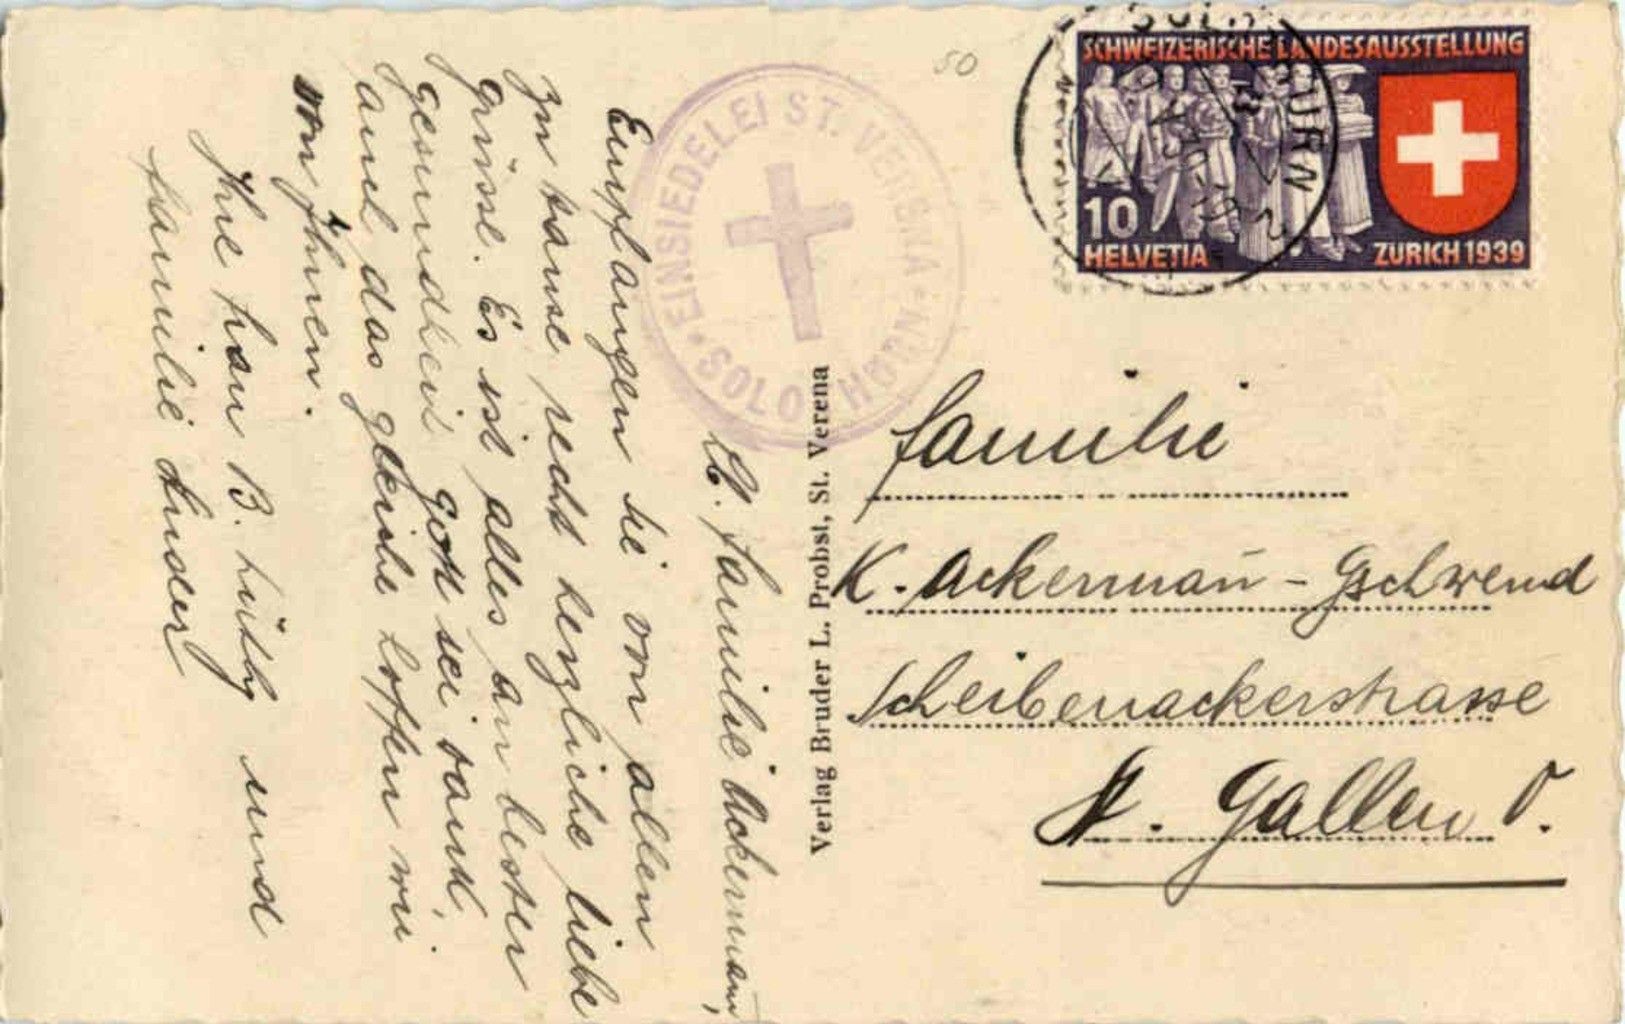 50
SCHWEIZERISCHE LANDESAUSSTELLUNG
10
HELVETIA
ZÜRICH 1939
SOLOTHURN
EINSIEDELEI ST. VERENA
SOLOTHURN
Verlag Bruder L. Probst, St. Verena
familie
K. Ackermañ - Gschwend
Scheibenackerstrasse
St. Gallen O.
familie Ackermann,
Empfangen sie von allen
zu hause recht herzliche liebe
grüsse. Es ist alles an bester
gesundheit gott sei dank,
auch das gleiche hoffen wir
von Ihnen.
Ihre frau B. Lüthy und
familie